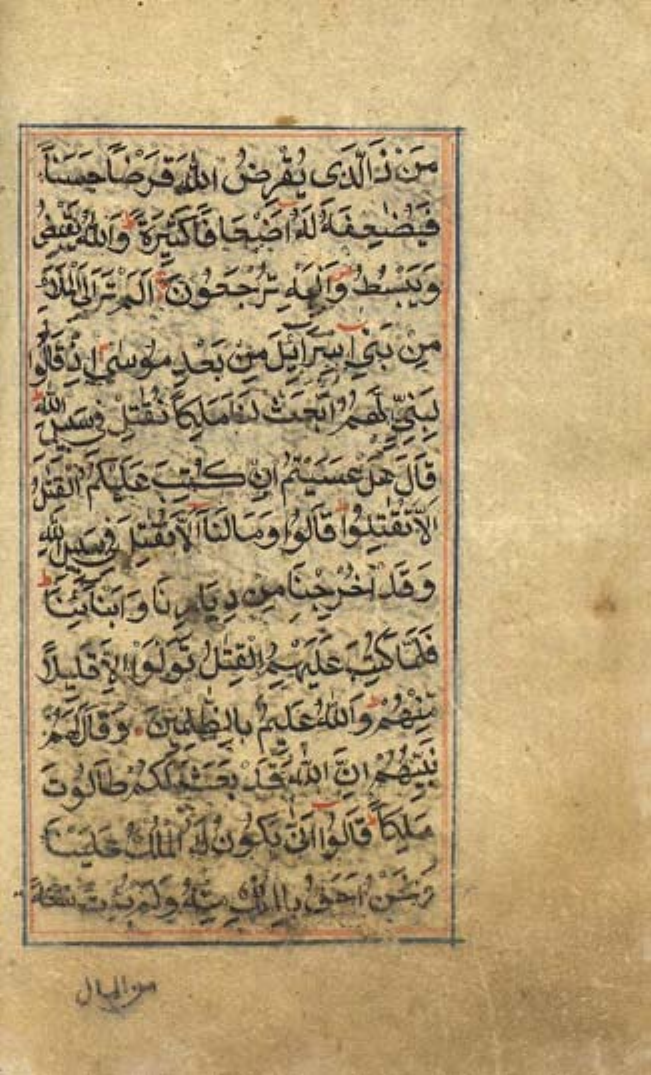 مَنْ ذَا الَّذِى يُقْرِضُ اللّٰهَ قَرْضًا حَسَنًا
فَيُضٰعِفَهٗ لَهٗ اَضْعَافًا كَثِيْرَةً ط وَاللّٰهُ يَقْبِضُ
وَيَبْسُطُ ص وَاِلَيْهِ تُرْجَعُوْنَ اَلَمْ تَرَ اِلَى الْمَلَاِ
مِنْ بَنِىْ اِسْرَآئِيْلَ مِنْ بَعْدِ مُوْسٰى م اِذْ قَالُوْا
لِنَبِىٍّ لَهُمُ ابْعَثْ لَنَا مَلِكًا نُقٰتِلْ فِىْ سَبِيْلِ اللّٰهِ ط
قَالَ هَلْ عَسَيْتُمْ اِنْ كُتِبَ عَلَيْكُمُ الْقِتٰلُ
اَلَّا تُقٰتِلُوْا ط قَالُوْا وَمَا لَنَآ اَلَّا نُقٰتِلَ فِىْ سَبِيْلِ اللّٰهِ
وَقَدْ اُخْرِجْنَا مِنْ دِيَارِنَا وَاَبْنَآئِنَا ط
فَلَمَّا كُتِبَ عَلَيْهِمُ الْقِتٰلُ تَوَلَّوْا اِلَّا قَلِيْلًا
مِّنْهُمْ ط وَاللّٰهُ عَلِيْمٌ بِالظّٰلِمِيْنَ وَقَالَ لَهُمْ
نَبِيُّهُمْ اِنَّ اللّٰهَ قَدْ بَعَثَ لَكُمْ طَالُوْتَ
مَلِكًا ط قَالُوْٓا اَنّٰى يَكُوْنُ لَهُ الْمُلْكُ عَلَيْنَا
وَنَحْنُ اَحَقُّ بِالْمُلْكِ مِنْهُ وَلَمْ يُؤْتَ سَعَةً
من المال